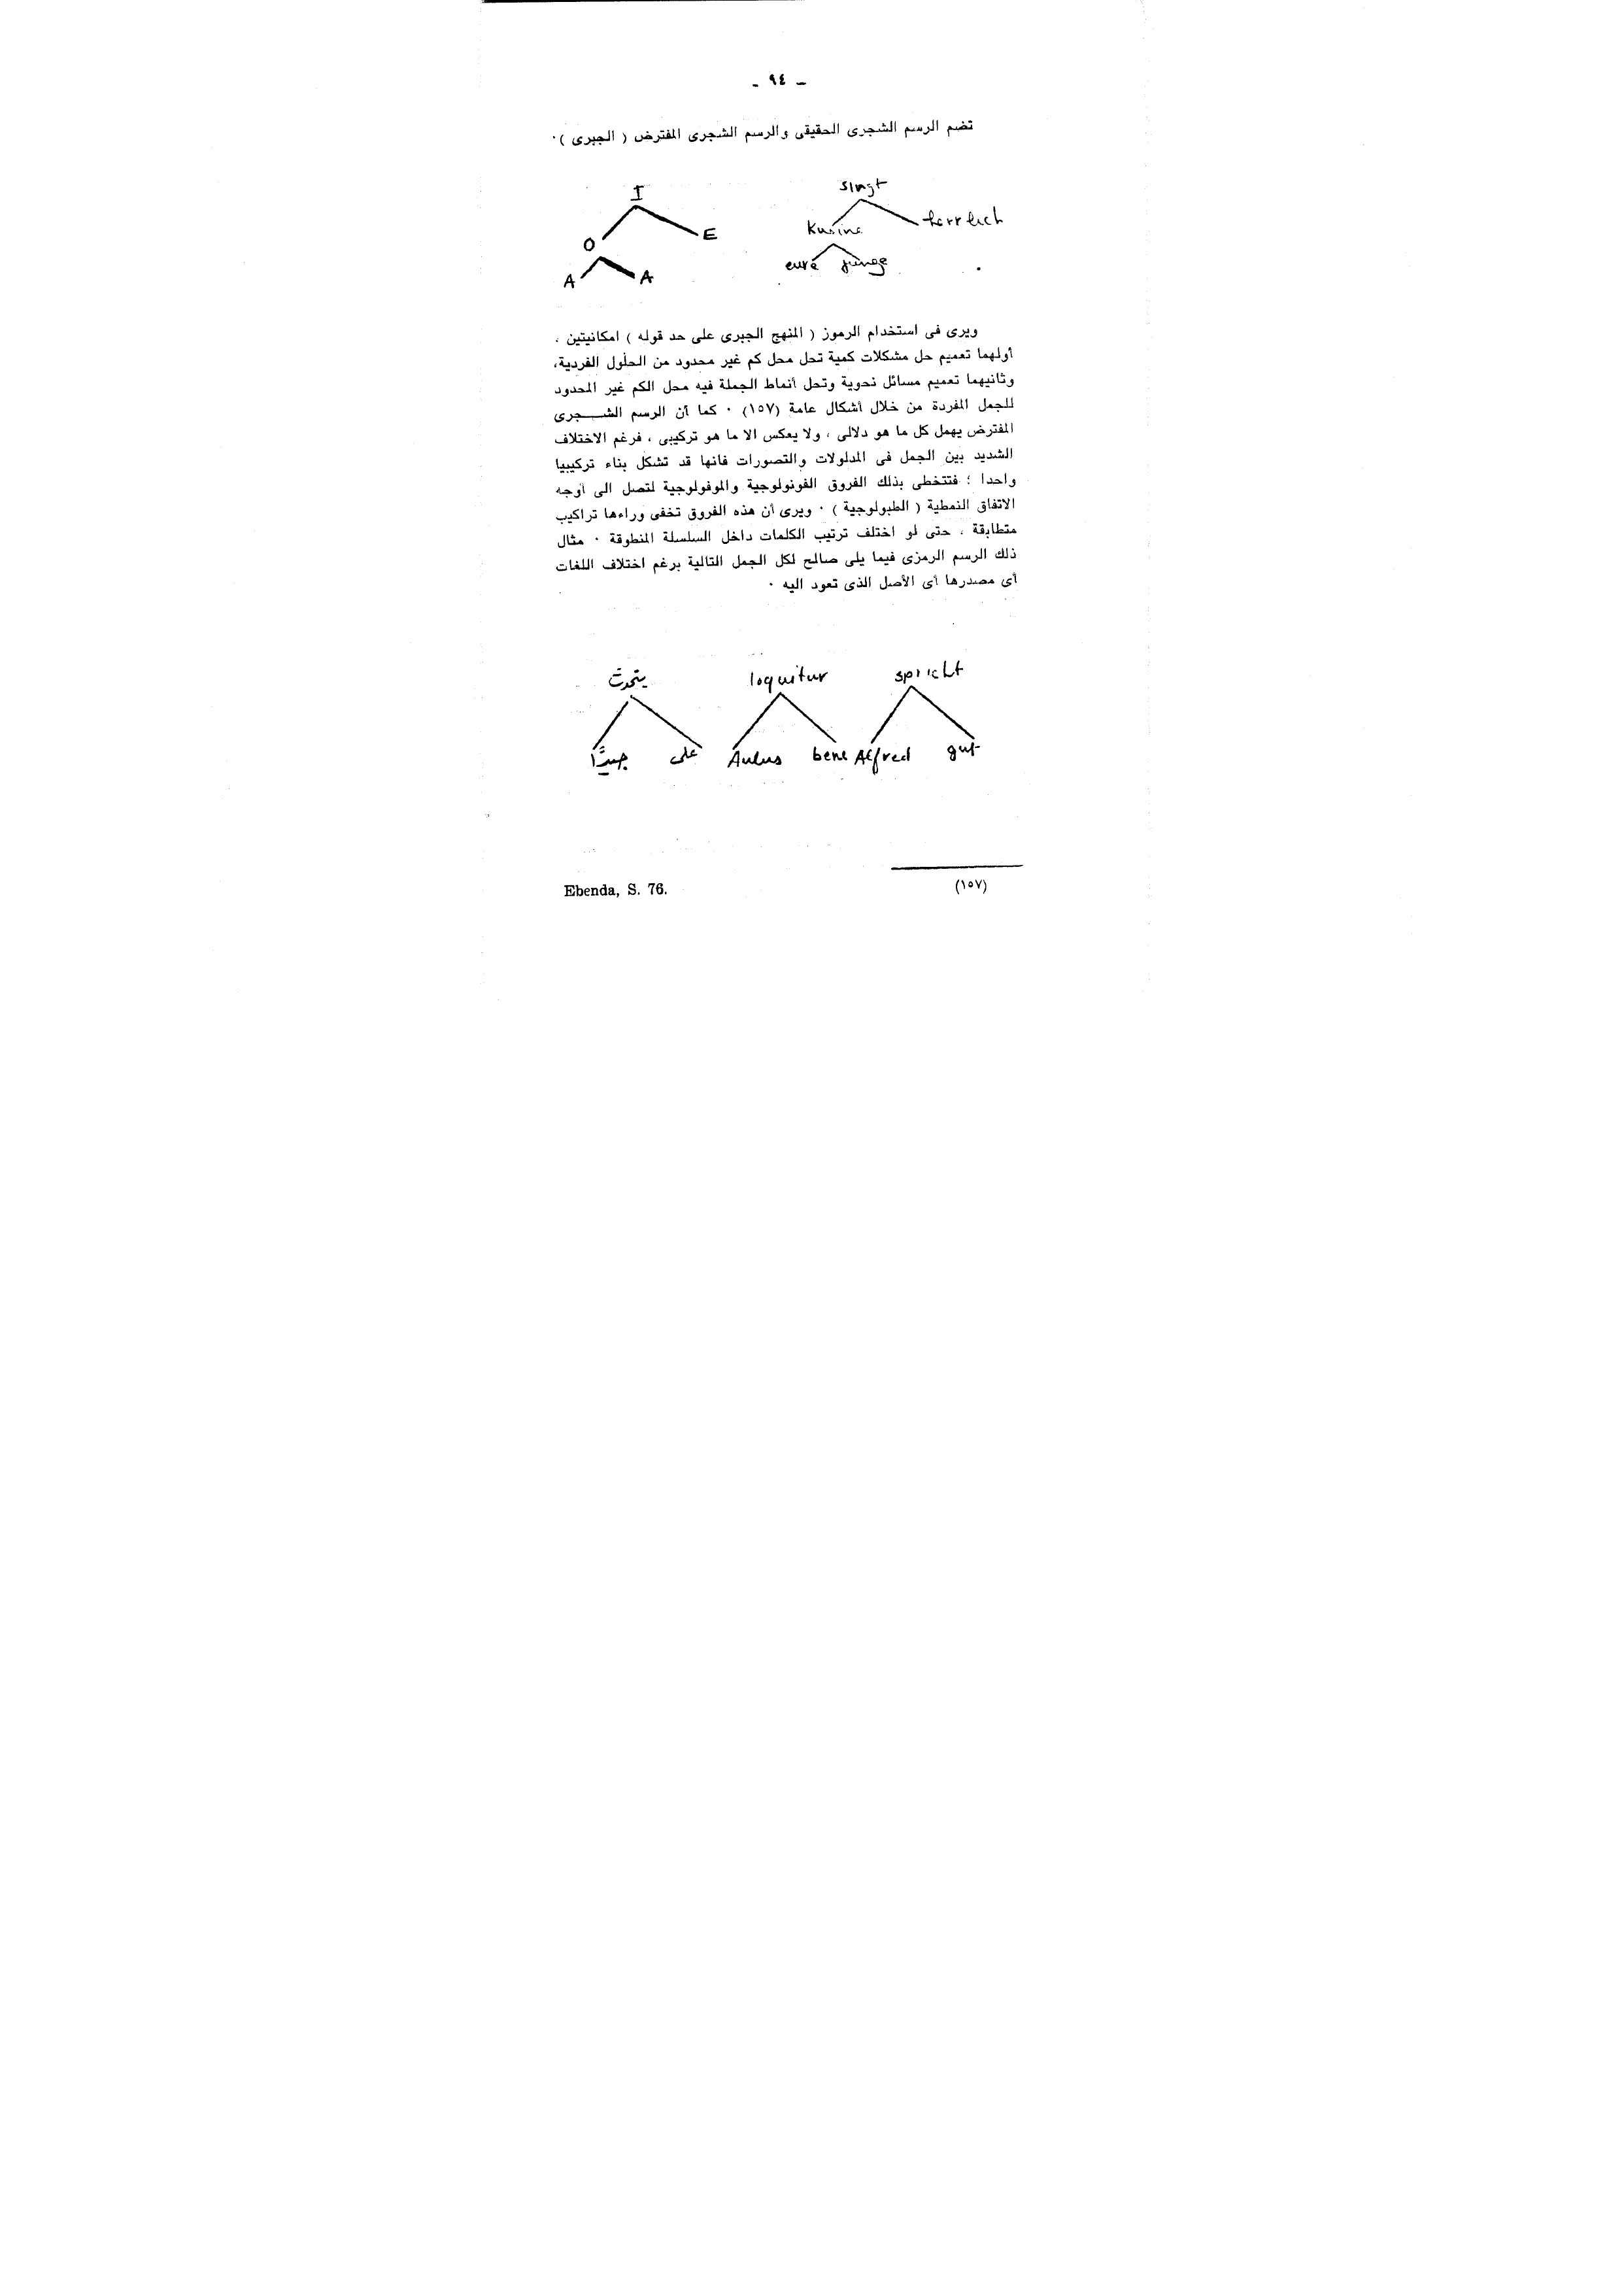 ـ ٩٤ ـ
تضم الرسم الشجرى الحقيقى والرسم الشجرى المفترض ( الجبرى ) ٠
I singt
O E Kusine herrlich
A A eure junge
ويرى فى استخدام الرموز ( المنهج الجبرى على حد قوله ) امكانيتين ،
أولهما تعميم حل مشكلات كمية تحل محل كم غير محدود من الحلول الفردية،
وثانيهما تعميم مسائل نحوية وتحل أنماط الجملة فيه محل الكم غير المحدود
للجمل المفردة من خلال أشكال عامة (١٥٧) ٠ كما أن الرسم الشـــجرى
المفترض يهمل كل ما هو دلالى ، ولا يعكس الا ما هو تركيبى ، فرغم الاختلاف
الشديد بين الجمل فى المدلولات والتصورات فانها قد تشكل بناء تركيبيا
واحدا ؛ فتتخطى بذلك الفروق الفونولوجية والموفولوجية لتصل الى أوجه
الاتفاق النمطية ( الطبولوجية ) ٠ ويرى أن هذه الفروق تخفى وراءها تراكيب
متطابقة ، حتى لو اختلف ترتيب الكلمات داخل السلسلة المنطوقة ٠ مثال
ذلك الرسم الرمزى فيما يلى صالح لكل الجمل التالية برغم اختلاف اللغات
أى مصدرها أى الأصل الذى تعود اليه ٠
يتحدث loquitur spricht
جيدًا على Aulus bene Alfred gut
(١٥٧) Ebenda, S. 76.